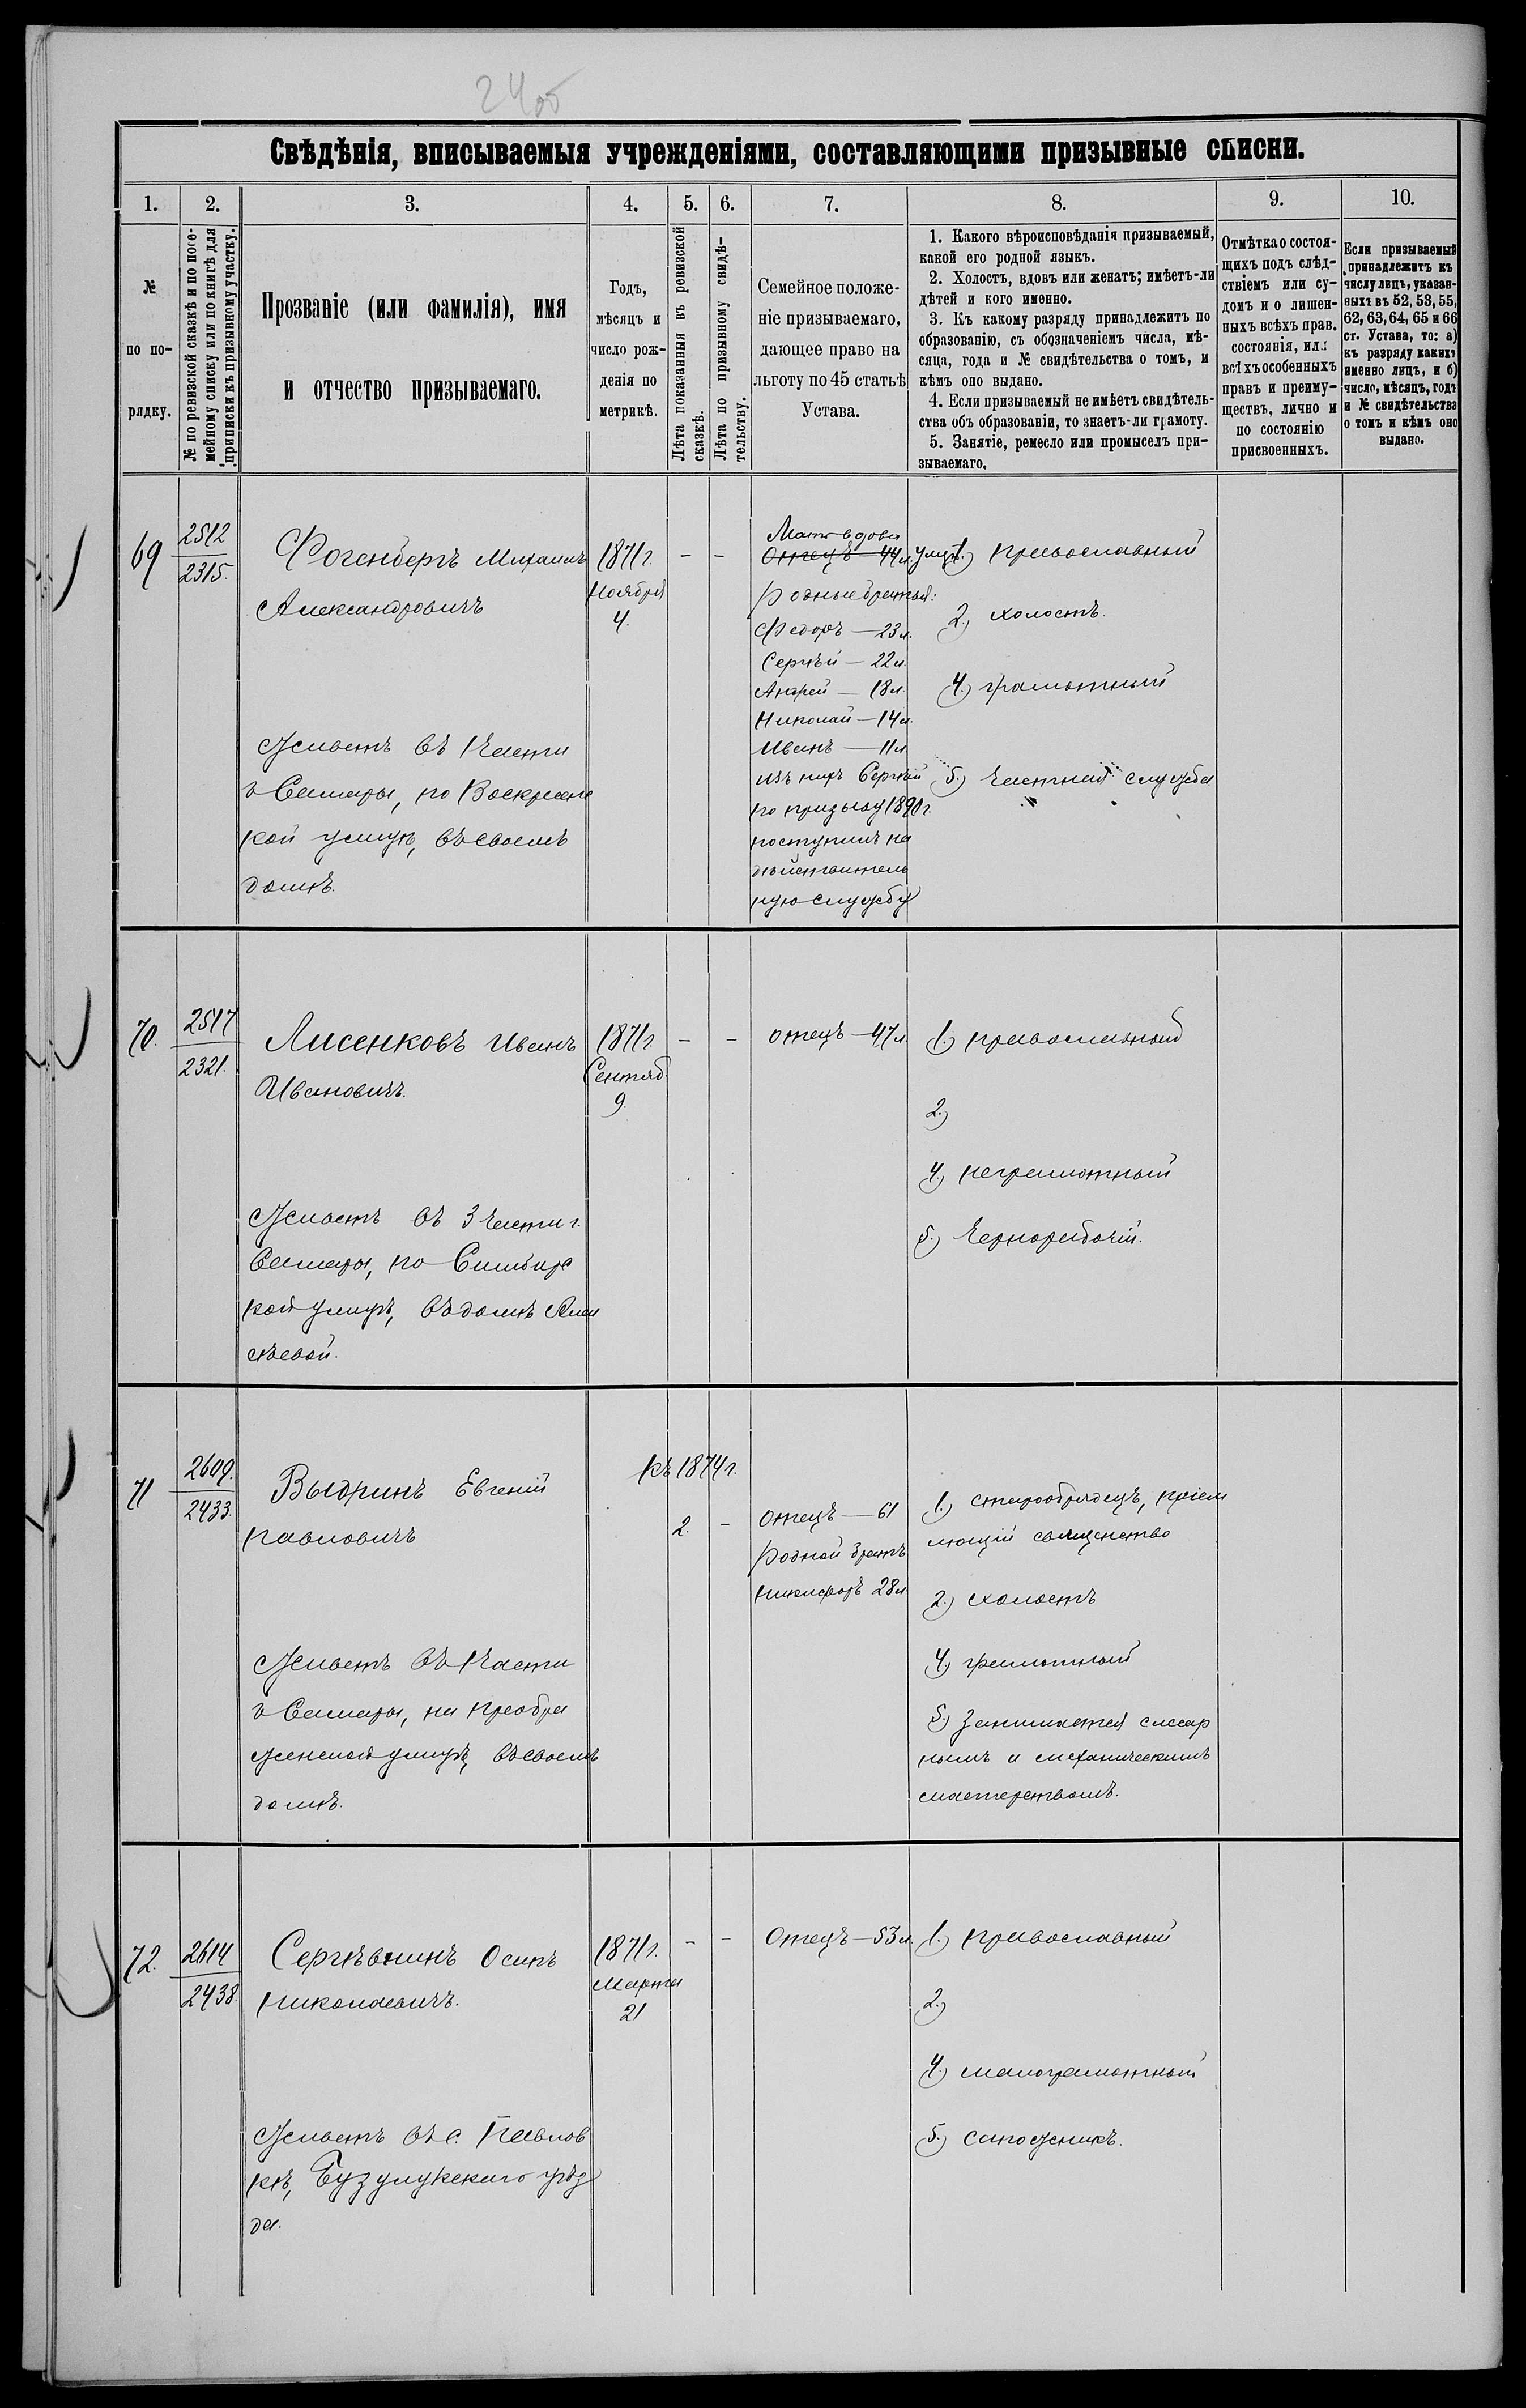 24об
Свѣдѣнія, вписываемыя учрежденіями, составляющими призывные списки.
1. 2. 3. 4. 5. 6. 7. 8. 9. 10.
№
по по-
рядку.
№ по ревизской сказкѣ и по посе-
мейному списку или по книгѣ для
приписки къ призывному участку.
Прозваніе (или фамилія), имя
и отчество призываемаго.
Годъ,
мѣсяцъ и
число рож-
денія по
метрикѣ.
Лѣта показанныя въ ревизской
сказкѣ.
Лѣта по призывному свидѣ-
тельству.
Семейное положе-
ніе призываемаго,
дающее право на
льготу по 45 статьѣ
Устава.
1. Какого вѣроисповѣданія призываемый,
какой его родной языкъ.
2. Холостъ, вдовъ или женатъ; имѣетъ-ли
дѣтей и кого именно.
3. Къ какому разряду принадлежитъ по
образованію, съ обозначеніемъ числа, мѣ-
сяца, года и № свидѣтельства о томъ, и
кѣмъ оно выдано.
4. Если призываемый не имѣетъ свидѣтель-
ства объ образованіи, то знаетъ-ли грамоту.
5. Занятіе, ремесло или промыселъ при-
зываемаго.
Отмѣтка о состоя-
щихъ подъ слѣд-
ствіемъ или су-
домъ и о лишен-
ныхъ всѣхъ прав.
состоянія, или
всѣхъ особенныхъ
правъ и преиму-
ществъ, лично и
по состоянію
присвоенныхъ.
Если призываемый
принадлежитъ къ
числу лицъ, указан-
ныхъ въ 52, 53, 55,
62, 63, 64, 65 и 66
ст. Устава, то: а)
къ разряду какихъ
именно лицъ, и б)
число, мѣсяцъ, годъ
и № свидѣтельства
о томъ и кѣмъ оно
выдано.
69
2512
2315.
Фогенбергъ Михаилъ
Александровичъ
Живетъ въ 1 части
г Самары, по Воскресенс
кой улицѣ, въ своемъ
домѣ.
1871 г.
Ноября
4.
– –
Мать вдова
Отецъ 44 л. умер
Родные братья:
Федоръ — 23 л.
Сергѣй — 22 л.
Андрей — 18 л.
Николай — 14 л.
Иванъ — 11 л
изъ нихъ Сергѣй
по призыву 1890 г.
поступилъ на
дѣйствитель
ную службу
1.) православный
2.) холостъ.
4.) грамотный
5.) частная служба
70.
2517
2321.
Лисенковъ Иванъ
Ивановичъ.
Живетъ въ 3 части г.
Самары, по Симбирс
кой улицѣ, въ домѣ Али
сѣевой.
1871 г
Сентяб
9.
– –
отецъ — 47 л.
1.) православный
2.)
4.) неграмотный
5.) Чернорабочій.
71
2609.
2433.
Выдринъ Евгеній
Павловичъ
Живетъ въ 1 части
г Самары, на Преобра
женской улицѣ, въ своемъ
домѣ.
къ 1874 г.
2. –
отецъ — 61
Родной братъ
Никифоръ 28 л
1.) старообрядецъ, пріем
лющій священство
2.) холостъ
4.) грамотный
5.) Занимается слесар
нымъ и механическимъ
мастерствомъ.
72.
2614
2438.
Сергѣвнинъ Осипъ
Николаевичъ.
Живетъ въ с. Павлов
кѣ, Бузулукскаго уѣз
да.
1871 г.
Марта
21
– –
Отецъ — 53 л.
1.) православный
2.)
4.) малограмотный
5.) сапожникъ.